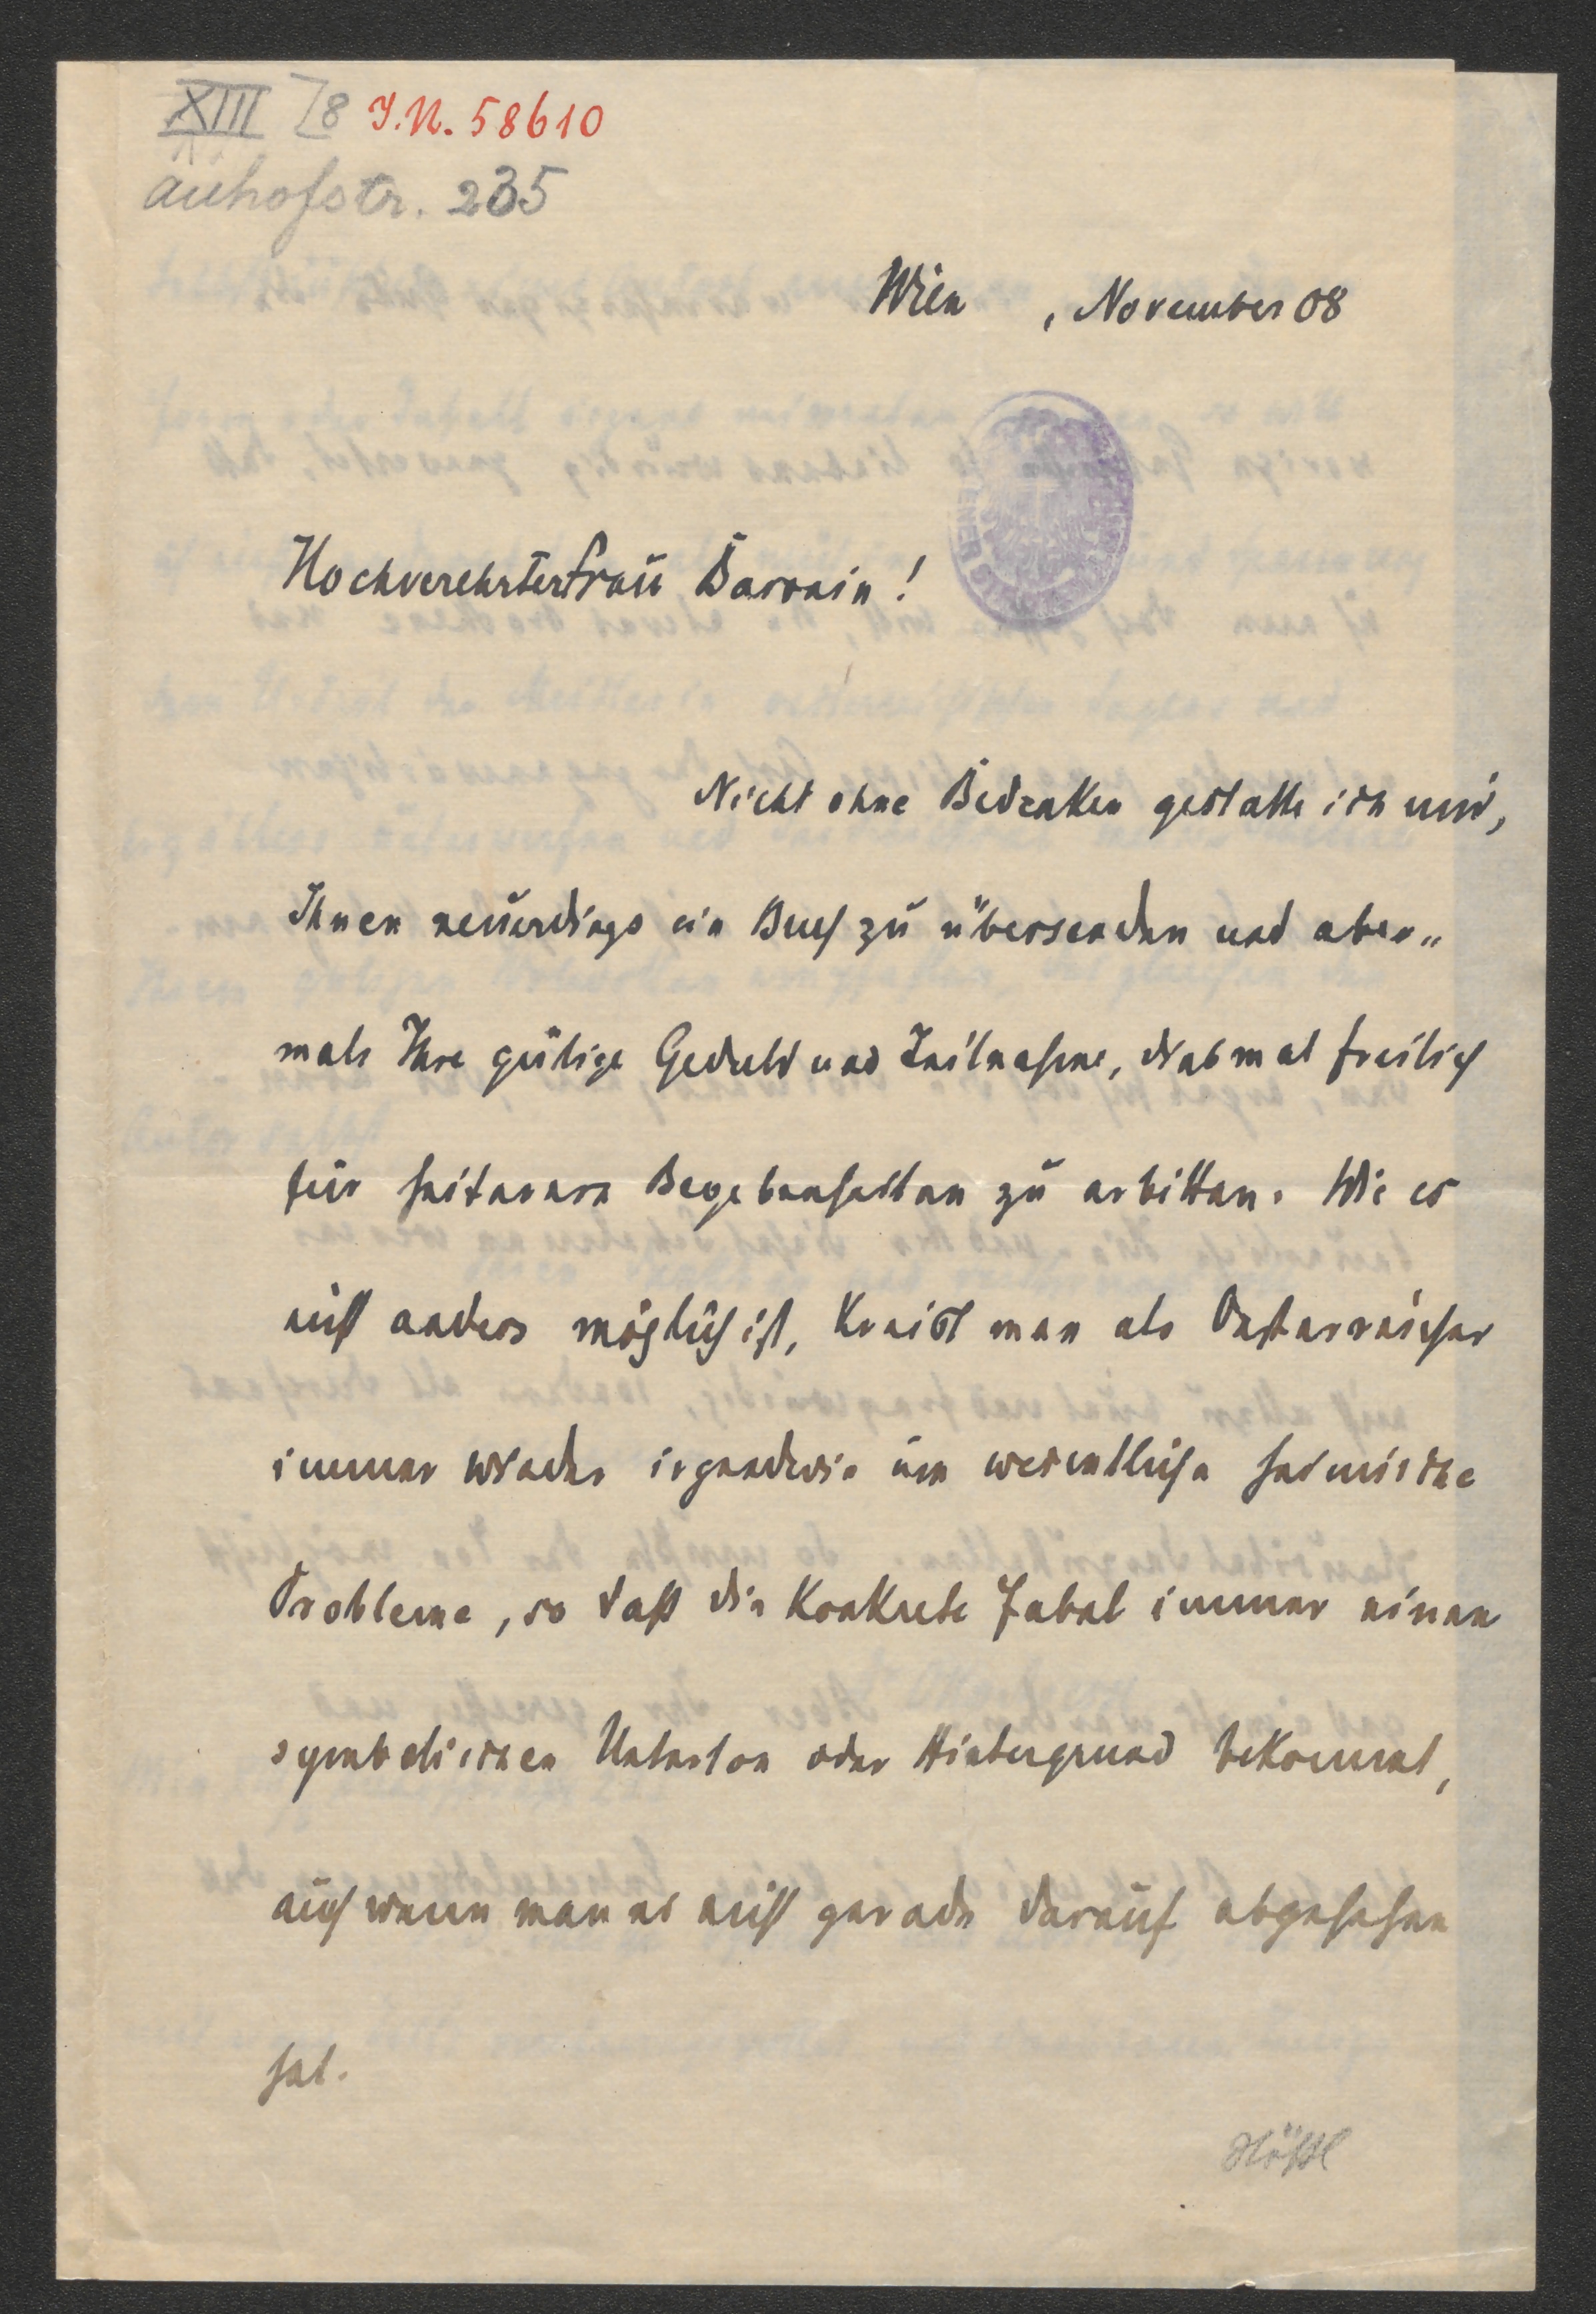 XIII /8 J.N. 58610
Auhofstr. 235
Wien , November 08
Hochverehrte Frau Baronin!
Nicht ohne Bedenken gestatte ich mir,
Ihnen neuerdings ein Buch zu übersenden und aber„
mals Ihre gütige Geduld und Teilnahme, diesmal freilich
für heiterere Begebenheiten zu erbitten. Wie es
nicht anders möglich ist, kreist man als Oesterreicher
immer wieder irgendwie um wesentliche heimische
Probleme, so daß die konkrete Fabel immer einen
symbolischen Unterton oder Hintergrund bekommt,
auch wenn man es nicht gerade darauf abgesehen
hat.